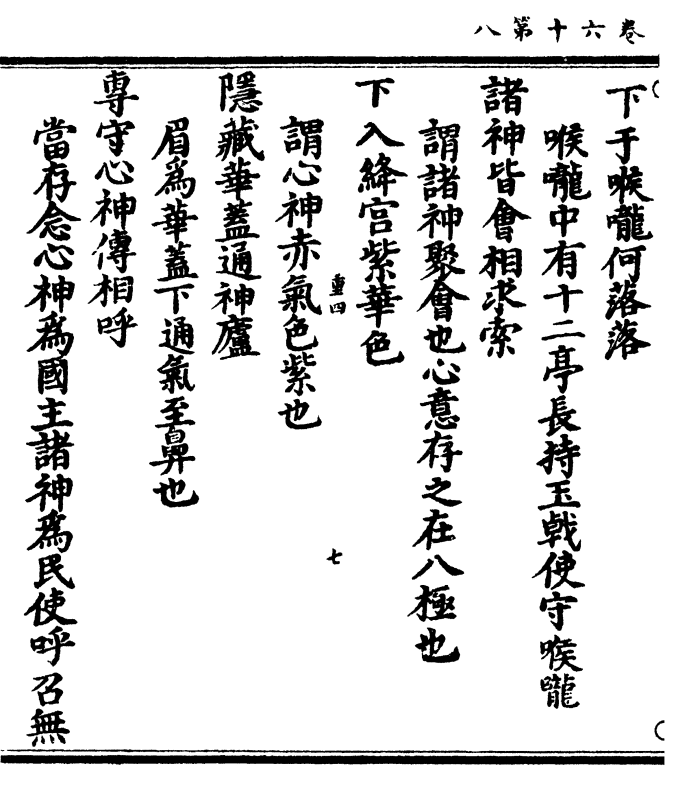 卷六十第八
下于喉嚨何落落
喉嚨中有十二亭長持玉戟使守喉嚨
諸神皆會相求索
謂諸神聚會也心意存之在八極也
下入絳宮紫華色
重四
七
謂心神赤氣色紫也
隱藏華蓋通神廬
眉爲華蓋下通氣至鼻也
專守心神傳相呼
當存念心神爲國主諸神爲民使呼召無